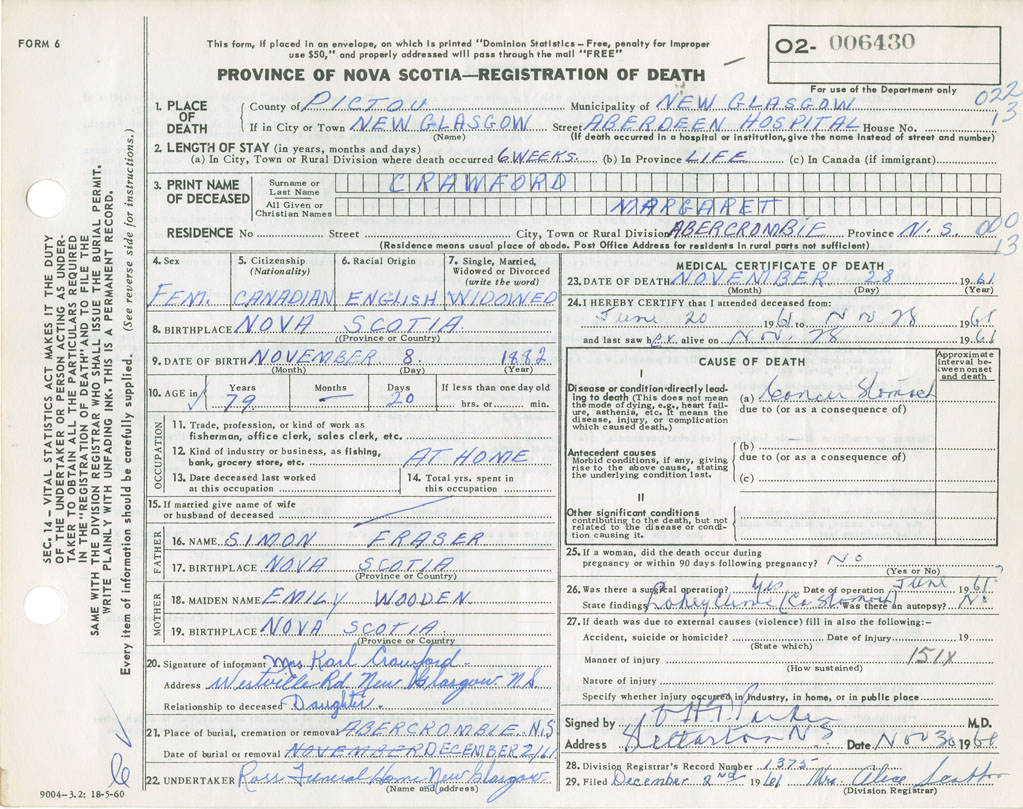 FORM 6
This form, if placed in an envelope, on which is printed "Dominion Statistics – Free, penalty for improper
use $50," and properly addressed will pass through the mail "FREE"
O2- 006430
PROVINCE OF NOVA SCOTIA—REGISTRATION OF DEATH
For use of the Department only
1. PLACE OF DEATH County of PICTOU Municipality of NEW GLASGOW 022
If in City or Town NEW GLASGOW Street ABERDEEN HOSPITAL House No. 13
(Name) (If death occurred in a hospital or institution, give the name instead of street and number)
2. LENGTH OF STAY (in years, months and days)
(a) In City, Town or Rural Division where death occurred 6 WEEKS (b) In Province LIFE (c) In Canada (if immigrant)
3. PRINT NAME OF DECEASED
Surname or Last Name CRAWFORD
All Given or Christian Names MARGARET
RESIDENCE No Street City, Town or Rural Division ABERCROMBIE Province N.S. 000
(Residence means usual place of abode. Post Office Address for residents in rural parts not sufficient) 13
4. Sex FEM.
5. Citizenship (Nationality) CANADIAN
6. Racial Origin ENGLISH
7. Single, Married, Widowed or Divorced (write the word) WIDOWED
8. BIRTHPLACE NOVA SCOTIA
(Province or Country)
9. DATE OF BIRTH NOVEMBER 8 1882
(Month) (Day) (Year)
10. AGE in Years 79 Months — Days 20 If less than one day old hrs. or min.
OCCUPATION
11. Trade, profession, or kind of work as
fisherman, office clerk, sales clerk, etc.
12. Kind of industry or business, as fishing,
bank, grocery store, etc. AT HOME
13. Date deceased last worked
at this occupation
14. Total yrs. spent in
this occupation
15. If married give name of wife
or husband of deceased
FATHER
16. NAME SIMON FRASER
17. BIRTHPLACE NOVA SCOTIA
(Province or Country)
MOTHER
18. MAIDEN NAME EMILY WOODEN
19. BIRTHPLACE NOVA SCOTIA
(Province or Country
20. Signature of informant Mrs Karl Crawford
Address Westville Rd New Glasgow N.S.
Relationship to deceased Daughter.
21. Place of burial, cremation or removal ABERCROMBIE N.S
Date of burial or removal NOVEMBER DECEMBER 2/61
22. UNDERTAKER Ross Funeral Home New Glasgow
(Name and address)
9004-3.2: 18-5-60
MEDICAL CERTIFICATE OF DEATH
23. DATE OF DEATH NOVEMBER 28 1961
(Month) (Day) (Year)
24. I HEREBY CERTIFY that I attended deceased from:
June 20 1961 to Nov 28 1961
and last saw her alive on Nov. 28 1961
CAUSE OF DEATH
Approximate interval between onset and death
I
Disease or condition directly leading to death (This does not mean the mode of dying, e.g., heart failure, asthenia, etc. It means the disease, injury, or complication which caused death.)
(a) Cancer Stomach
due to (or as a consequence of)
Antecedent causes
Morbid conditions, if any, giving rise to the above cause, stating the underlying condition last.
(b)
due to (or as a consequence of)
(c)
II
Other significant conditions
contributing to the death, but not related to the disease or condition causing it.
25. If a woman, did the death occur during
pregnancy or within 90 days following pregnancy? No
(Yes or No)
26. Was there a surgical operation? Yes Date of operation June 1961
State findings (Ca Stomach) Was there an autopsy? No
27. If death was due to external causes (violence) fill in also the following:-
Accident, suicide or homicide? Date of injury 19
(State which)
Manner of injury 151X
(How sustained)
Nature of injury
Specify whether injury occurred in industry, in home, or in public place
Signed by M.D.
Address Stellarton N S Date Nov 30 1961
28. Division Registrar's Record Number 1375
29. Filed December 2nd 1961 Mrs. Alice
(Division Registrar)
SEC. 14 – VITAL STATISTICS ACT MAKES IT THE DUTY
OF THE UNDERTAKER OR PERSON ACTING AS UNDER-
TAKER TO OBTAIN ALL THE PARTICULARS REQUIRED
IN THE "REGISTRATION OF DEATH" AND TO FILE THE
SAME WITH THE DIVISION REGISTRAR WHO SHALL ISSUE THE BURIAL PERMIT.
WRITE PLAINLY WITH UNFADING INK-THIS IS A PERMANENT RECORD.
Every item of information should be carefully supplied. (See reverse side for instructions.)